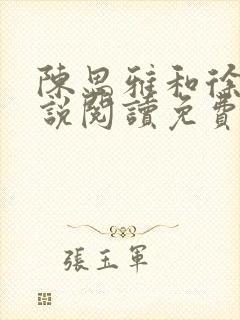 陳思雅和徐
說閱讀免費
張玉軍